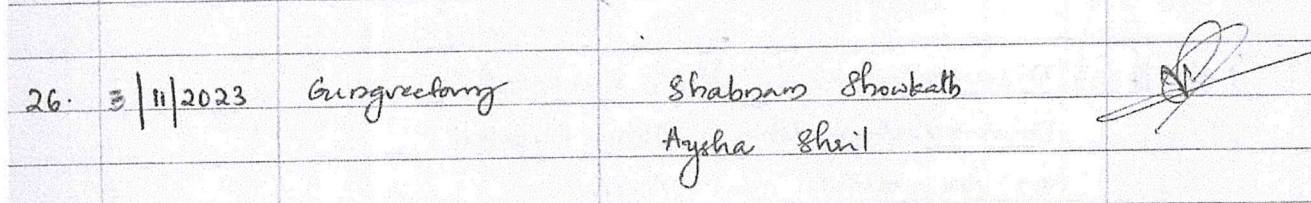 26. 3/11/2023 Gingivectomy Shabnam Showkath
Aysha Shril